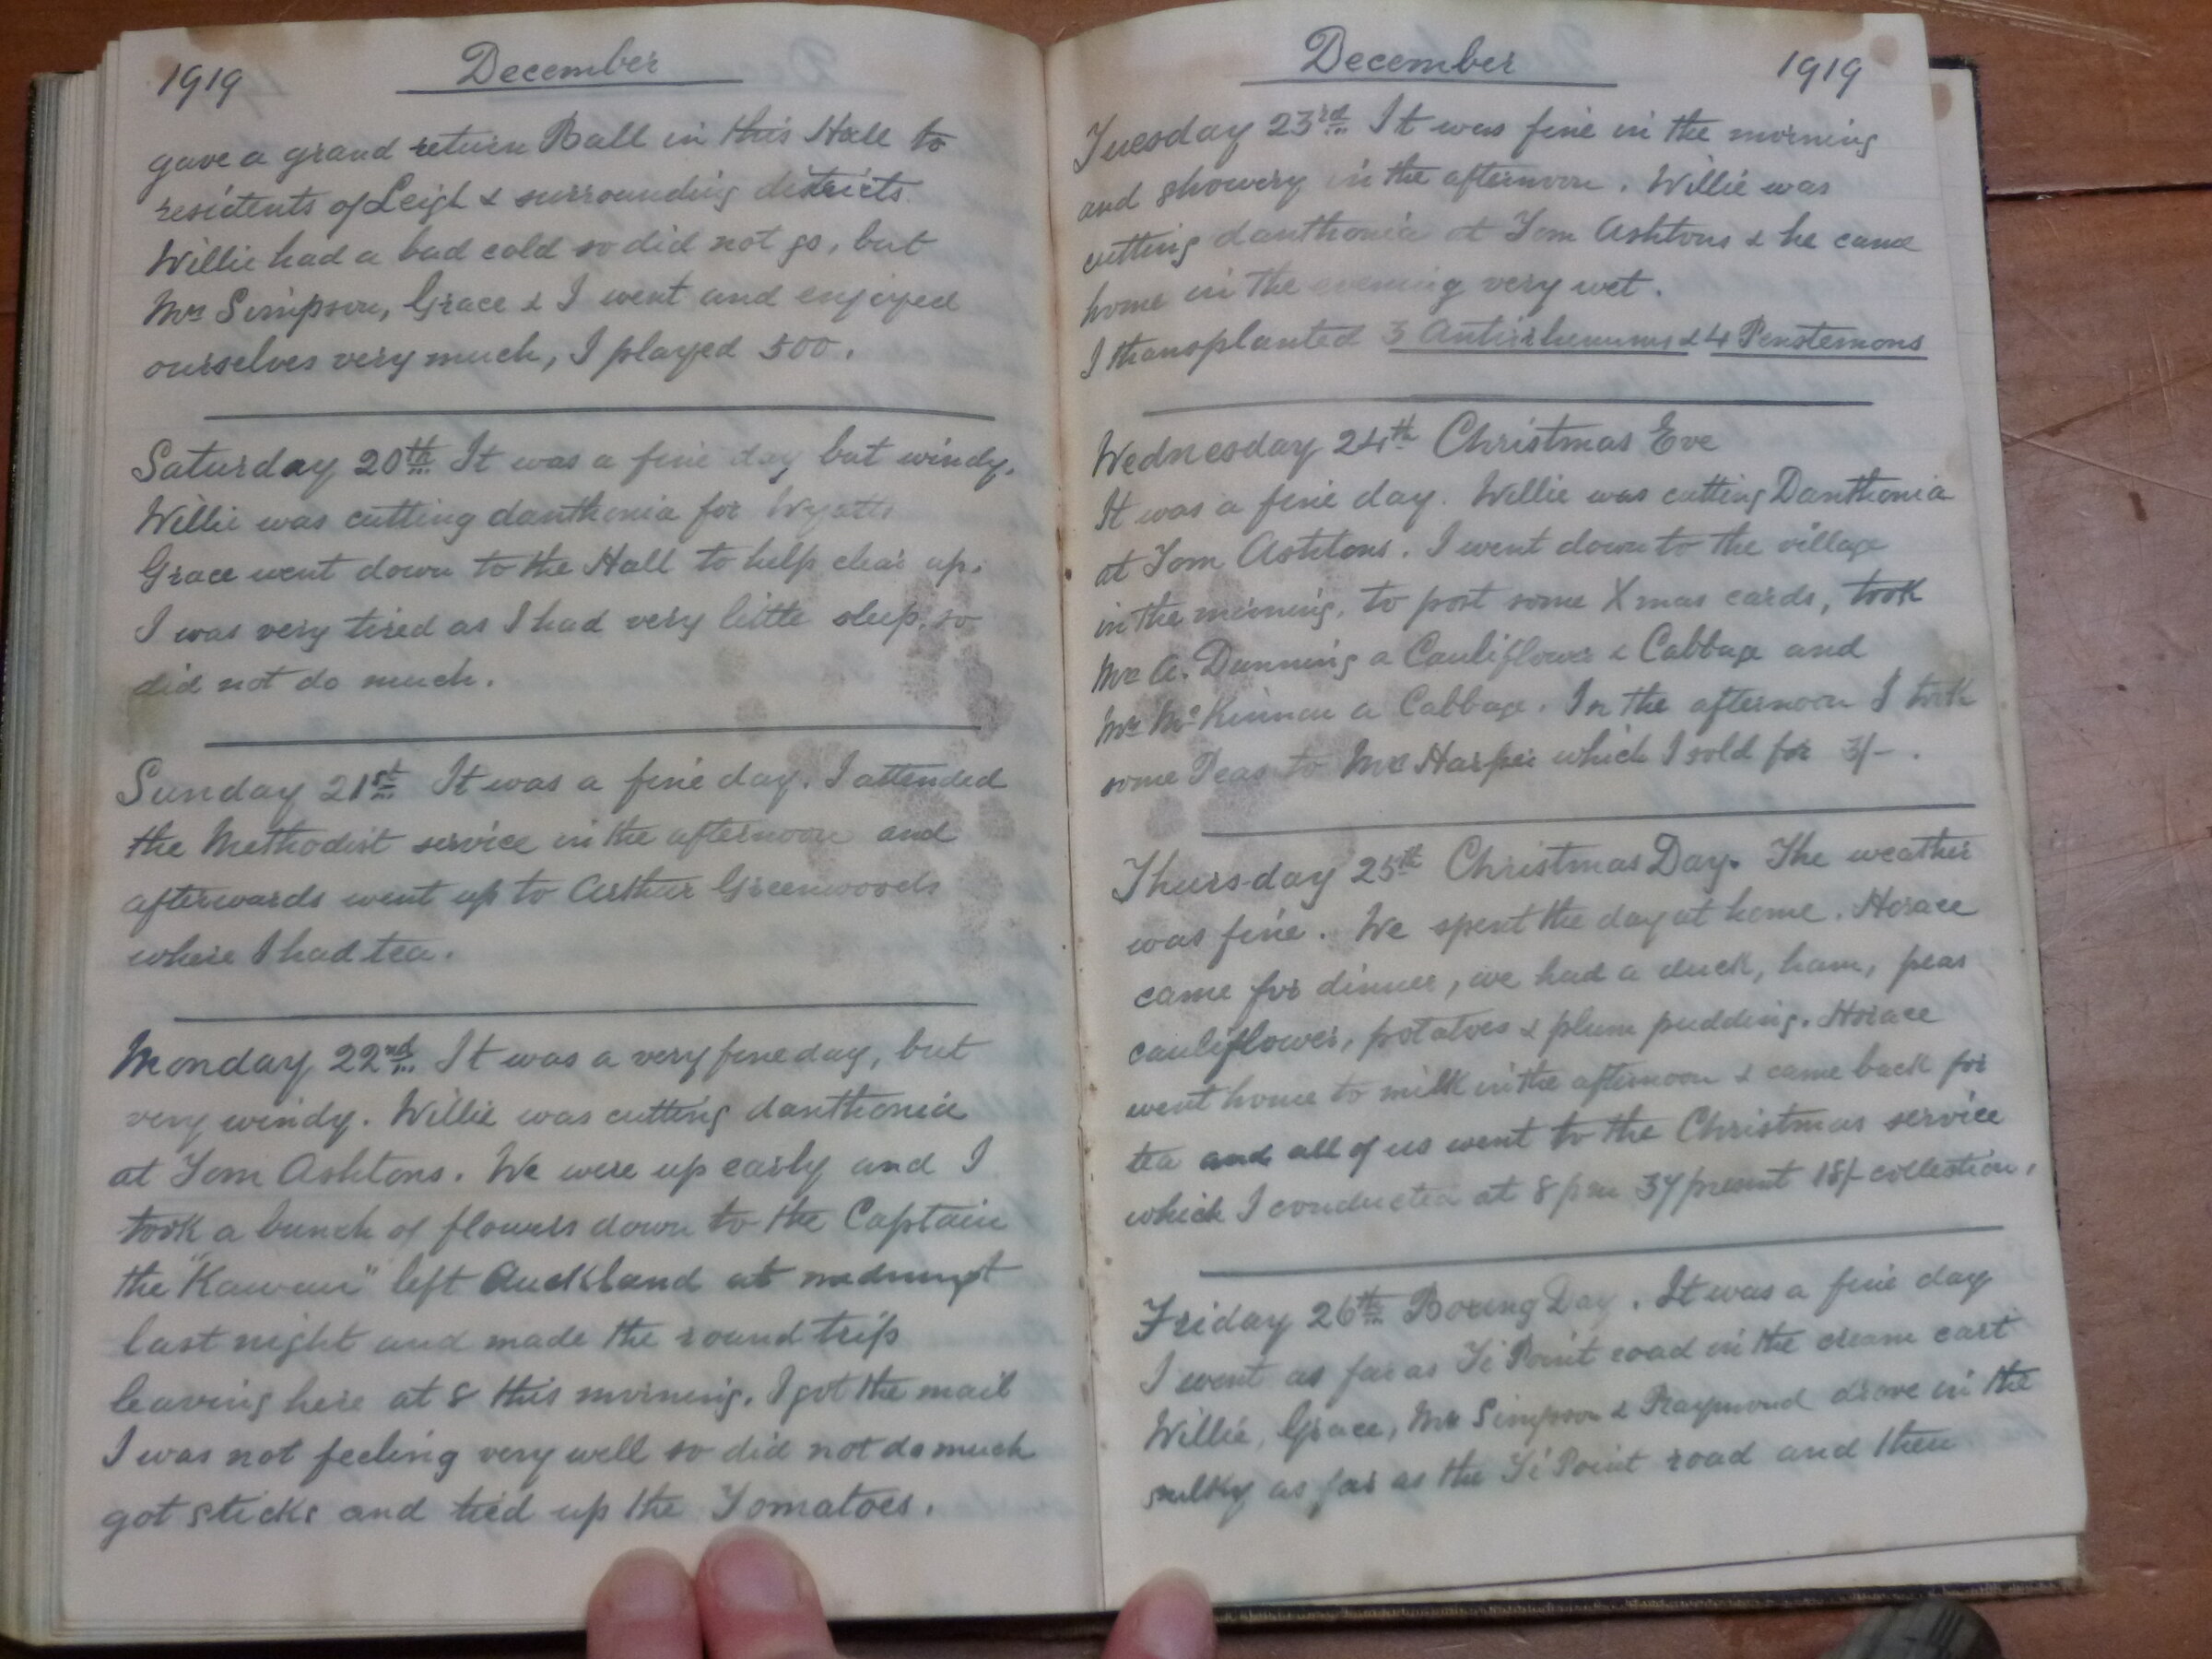 1919 December
gave a grand return Ball in this Hall to
residents of Leigh & surrounding districts.
Willie had a bad cold so did not go, but
Mrs Simpson, Grace & I went and enjoyed
ourselves very much, I played 500.
Saturday 20th It was a fine day but windy.
Willie was cutting danthonia for Wyatts
Grace went down to the Hall to help clear up.
I was very tired as I had very little sleep, so
did not do much.
Sunday 21st It was a fine day. I attended
the Methodist service in the afternoon and
afterwards went up to Arthur Greenwoods
where I had tea.
Monday 22nd It was a very fine day, but
very windy. Willie was cutting danthonia
at Tom Ashtons. We were up early and I
took a bunch of flowers down to the Captain
the "Kawau" left Auckland at
last night and made the round trip
leaving here at 8 this morning. I got the mail
I was not feeling very well so did not do much
got sticks and tied up the Tomatoes.
December 1919
Tuesday 23rd It was fine in the morning
and showery in the afternoon. Willie was
cutting danthonia at Tom Ashtons & he came
home in the evening very wet.
I transplanted 3 Antirrhenums & 4 Penstemons
Wednesday 24th Christmas Eve
It was a fine day. Willie was cutting Danthonia
at Tom Ashtons. I went down to the village
in the morning, to post some Xmas cards, took
Mrs A. Dunning a Cauliflower & Cabbage and
Mrs McKinnon a Cabbage. In the afternoon I took
some Peas to Mrs Harper which I sold for 3/-.
Thursday 25th Christmas Day. The weather
was fine. We spent the day at home. Horace
came for dinner, we had a duck, ham, peas
cauliflower, potatoes & plum pudding. Horace
went home to milk in the afternoon & came back for
tea and all of us went to the Christmas service
which I conducted at 8 pm 37 present 18/- collection.
Friday 26th Boxing Day. It was a fine day
I went as far as Ti Point road in the cream cart
Willie, Grace, Mrs Simpson & Raymond drove in the
sulky as far as the Ti Point road and then